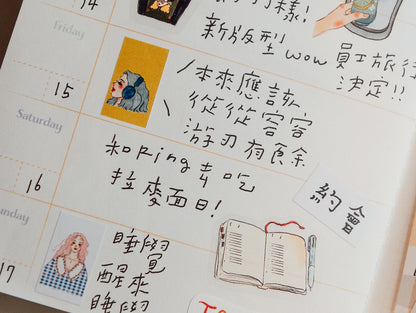 14
樣!
新版型 wow
員工旅行
決定!!
Friday
本來應該
從從容容
游刃有餘
15
Saturday
和Ring去吃
拉麥面日!
約會
16
Sunday
睡覺
醒來
睡覺
17